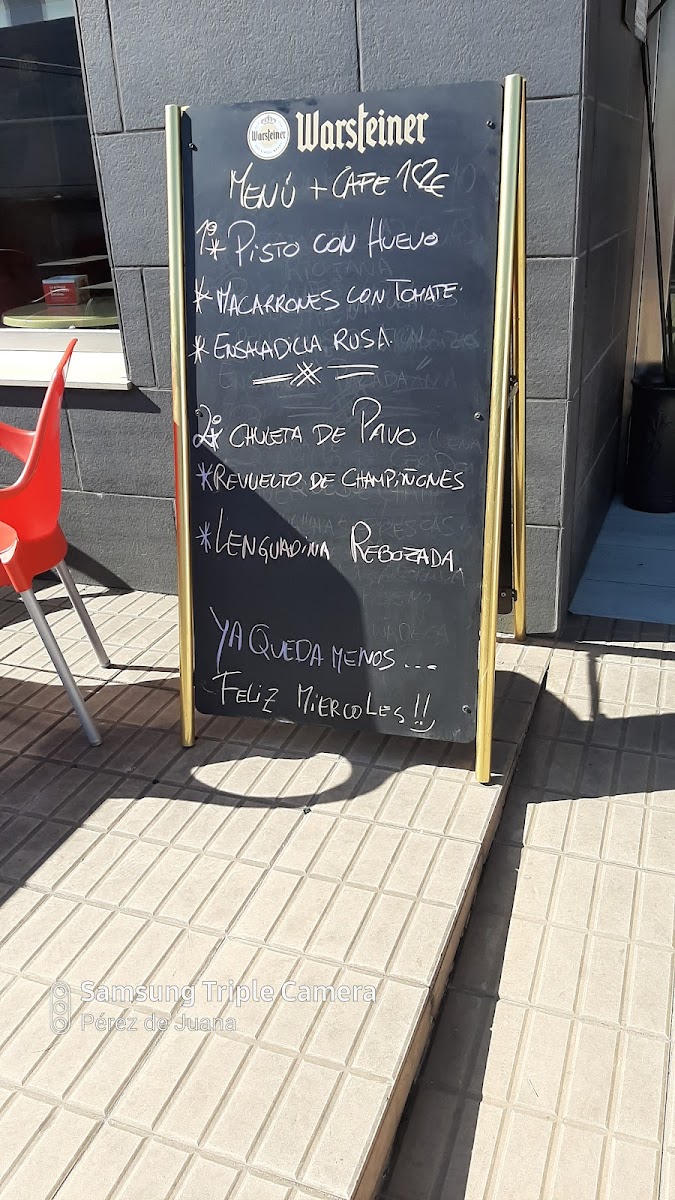 Warsteiner Warsteiner
MENÚ + CAFE 12€
1º* PISTO CON HUEVO
* MACARRONES CON TOMATE.
* ENSALADILLA RUSA.
2º* CHULETA DE PAVO
* REVUELTO DE CHAMPIÑONES
* LENGUADINA REBOZADA.
YA QUEDA MENOS...
FELIZ MIERCOLES!!
Samsung Triple Camera
Pérez de Juana